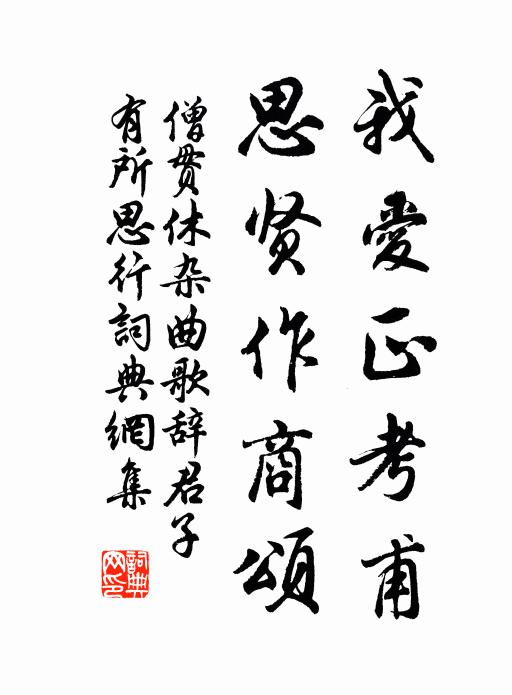 我愛正考甫
思贤作商頌
僧贯休杂曲歌辞君子
有所思行詞典網集
詞典
网印